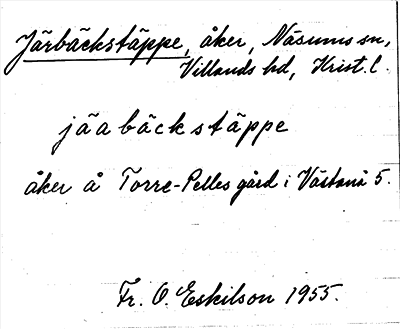 Järbäckstäppe, åker, Näsums sn,
Villands hd, Krist. l.
jäabäckstäppe
åker å Torre-Pelles gård i Västanå 5.
Fr. O. Eskilson 1955.